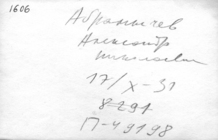 1606
Абрамычев
Александр
Николаевич
17/X-31
8291
П-49198